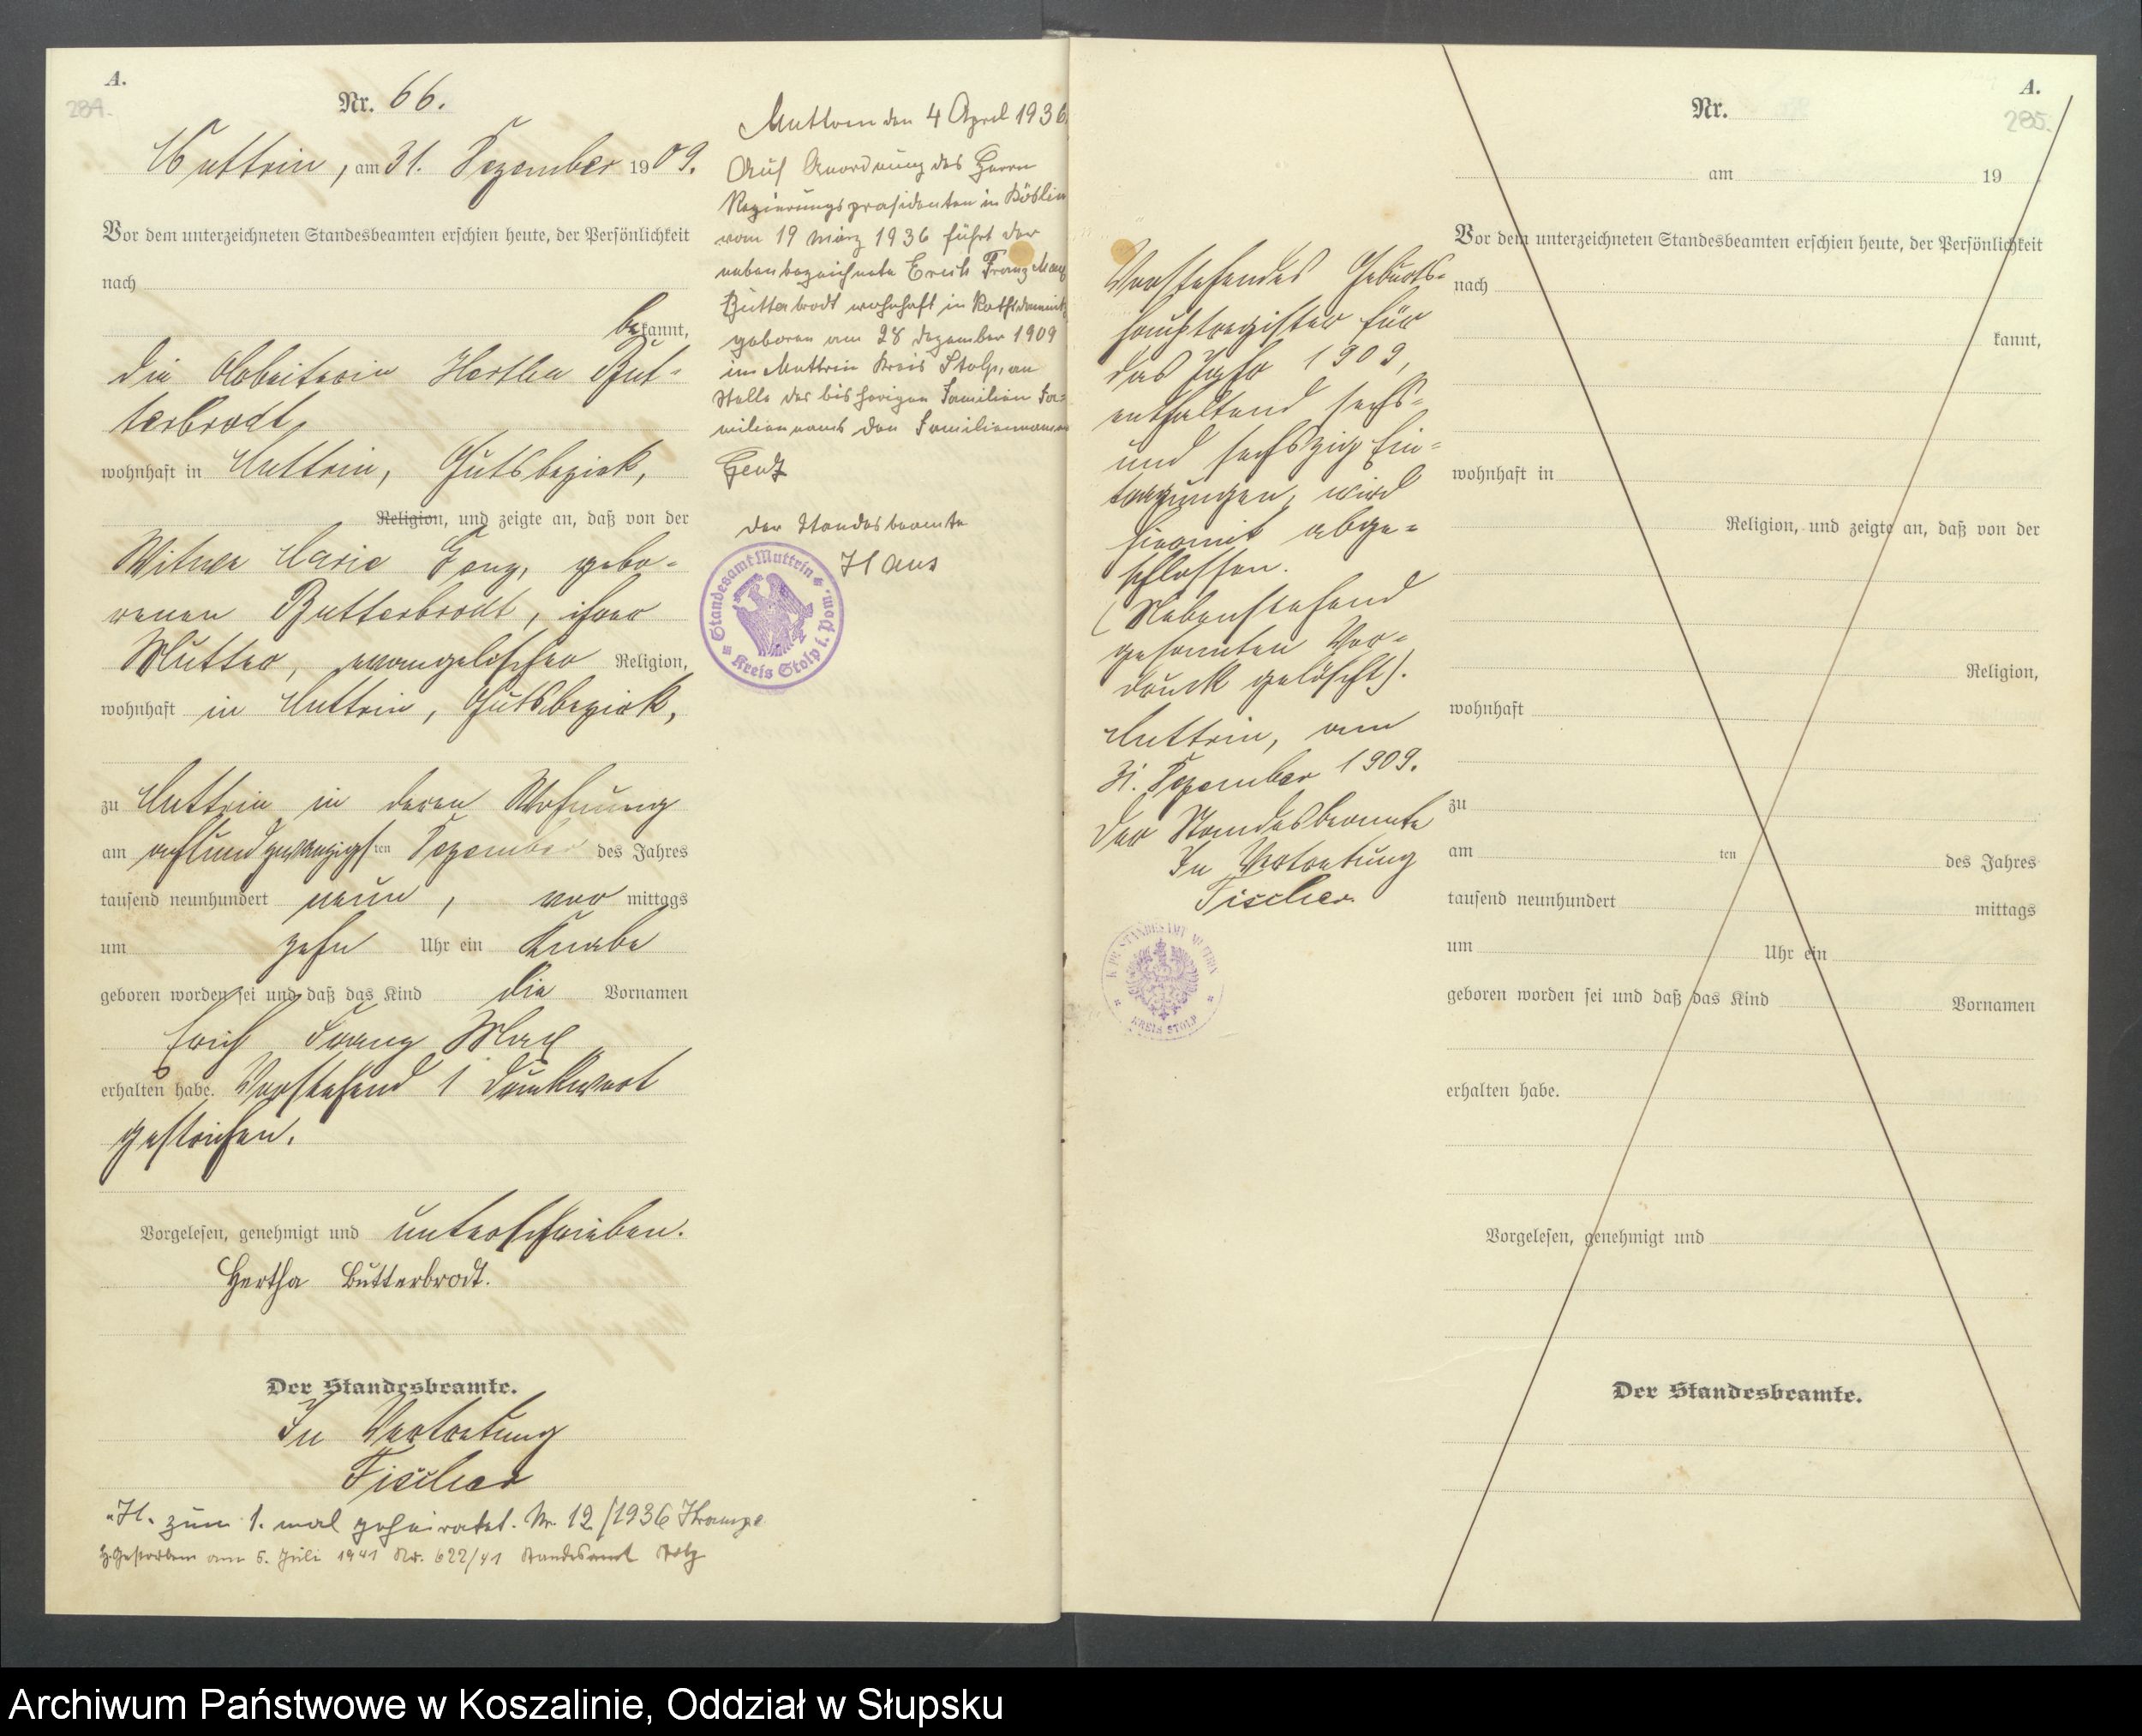 A.
284.
Nr. 66.
Muttrin, am 31. Dezember 1909.
Vor dem unterzeichneten Standesbeamten erschien heute, der Persönlichkeit
nach
bekannt,
die Arbeiterin Hertha But-
terbrodt,
wohnhaft in Muttrin, Gutsbezirk,
Religion, und zeigte an, daß von der
Witwe Marie Genz, gebo-
renen Butterbrodt, ihrer
Mutter, evangelischer Religion,
wohnhaft in Muttrin, Gutsbezirk,
zu Muttrin in deren Wohnung
am achtundzwanzigsten Dezember des Jahres
tausend neunhundert neun, vor mittags
um zehn Uhr ein Knabe
geboren worden sei und daß das Kind die Vornamen
Erich Franz Max
erhalten habe. Vorstehend 1 Druckwort
gestrichen.
Vorgelesen, genehmigt und unterschrieben.
Hertha Butterbrodt.
Der Standesbeamte.
In Vertretung
Fischer
H. zum 1. mal geheiratet. Nr. 12/1936
gestorben am 5. Juli 1941 Nr. 622/41 Standesamt
Muttrin den 4 April 1936
Auf Anordnung des Herrn
Regierungspräsidenten in Köslin
vom 19 März 1936 führt der
nebenbezeichnete Erich Franz Max
Butterbrodt wohnhaft in Rathsdamnitz
geboren am 28 Dezember 1909
in Muttrin Kreis Stolp, an
Stelle des bisherigen Familien Fa=
miliennamens den Familiennamen
Genz
Der Standesbeamte
Haus
Standesamt Muttrin
Kreis Stolp i. Pom.
Vorstehendes Geburts-
hauptregister für
das Jahr 1909,
enthaltend sechs-
und sechszig Ein-
tragungen, wird
hiermit abge-
schlossen.
(Nebenstehend
genannten Vor-
druck gelöscht).
Muttrin, am
31. Dezember 1909.
Der Standesbeamte
In Vertretung
Fischer.
K. PR. STANDESAMT MUTTRIN
KREIS STOLP
A.
285.
Nr.
am 19
Vor dem unterzeichneten Standesbeamten erschien heute, der Persönlichkeit
nach
kannt,
wohnhaft in
Religion, und zeigte an, daß von der
Religion,
wohnhaft
zu
am ten des Jahres
tausend neunhundert mittags
um Uhr ein
geboren worden sei und daß das Kind Vornamen
erhalten habe.
Vorgelesen, genehmigt und
Der Standesbeamte.
Archiwum Państwowe w Koszalinie, Oddział w Słupsku